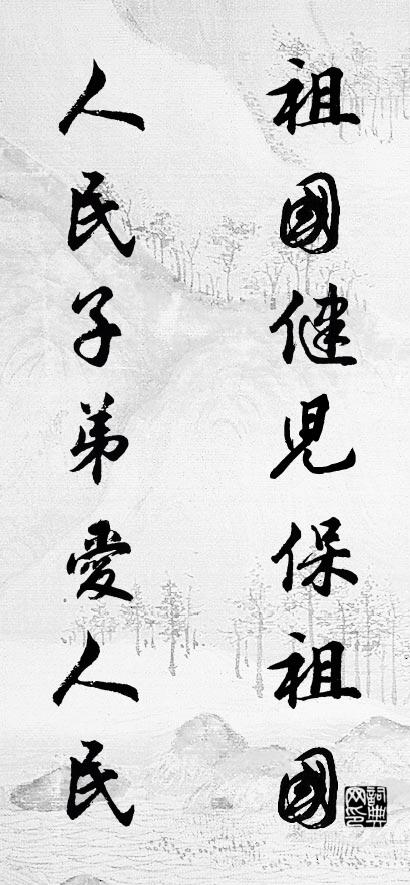 祖國健兒保祖國
人民子弟愛人民
詞典網印